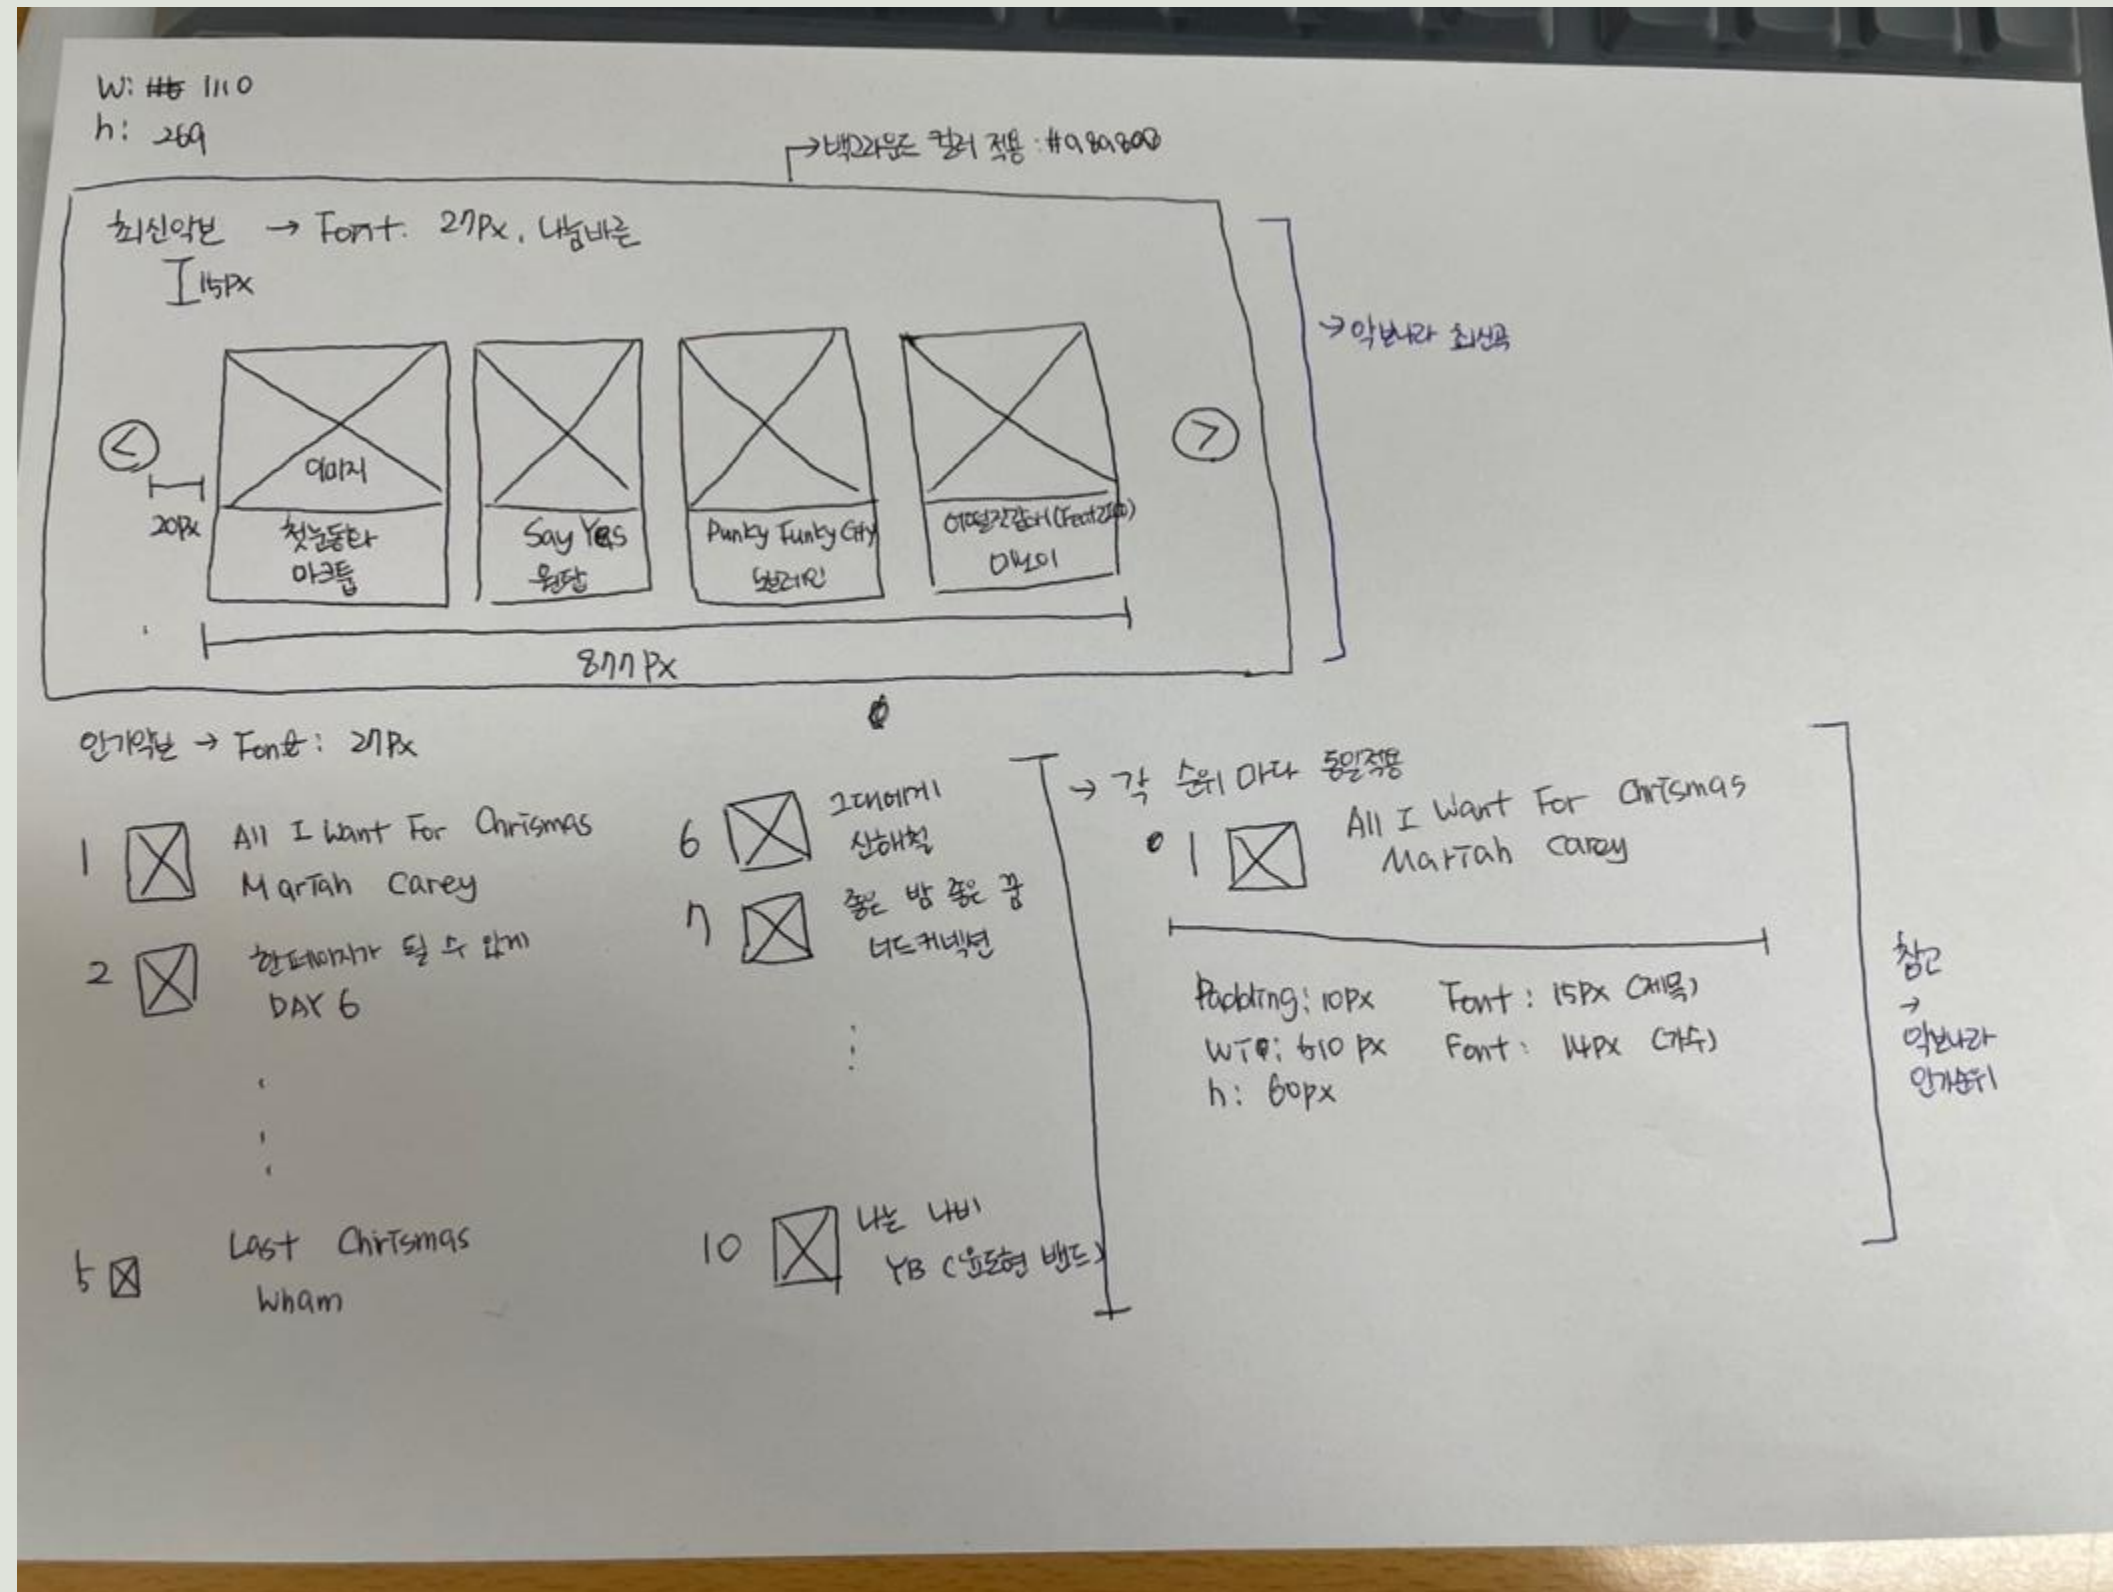 W: 1110
h: 269
→ 백그라운드 컬러 적용 : #989808
최신악보 → Font: 27Px, 나눔바른
15Px
→ 악보나라 최신곡
<
>
이미지
20Px
첫눈동화
마크툽
Say Yes
원탑
Punky Funky City
노브레인
어떨것같애(Feat
미노이
877 Px
인기악보 → Font : 27Px
1 All I Want For Chrismas
Mariah Carey
2 한페이지가 될 수 있게
DAY 6
5 Last Chrismas
Wham
6 그대에게
신해철
7 좋은 밤 좋은 꿈
너드커넥션
10 나는 나비
YB (윤도현 밴드)
→ 각 순위 마다 동일적용
1 All I Want For Chrismas
Mariah Carey
Padding: 10Px Font : 15Px (제목)
610 Px Font : 14Px (가수)
h: 60px
참고
→
악보나라
인기순위